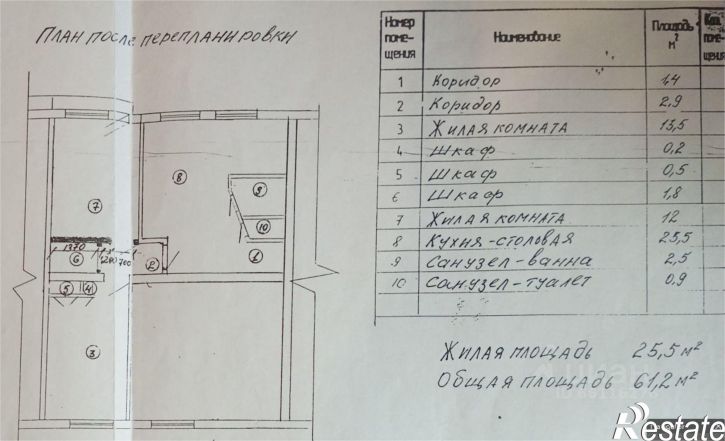 План после перепланировки
Номер поме- щения Наименование Площадь м² Коэ. поме- щения
1 Коридор 1,4
2 Коридор 2,9
3 Жилая комната 13,5
4 Шкаф 0,2
5 Шкаф 0,5
6 Шкаф 1,8
7 Жилая комната 12
8 Кухня-столовая 25,5
9 Санузел-ванна 2,5
10 Санузел-туалет 0,9
Жилая площадь 25,5 м²
Общая площадь 61,2 м²
8
9
7
10
1370
1
6
2
700
5
4
3
Restate